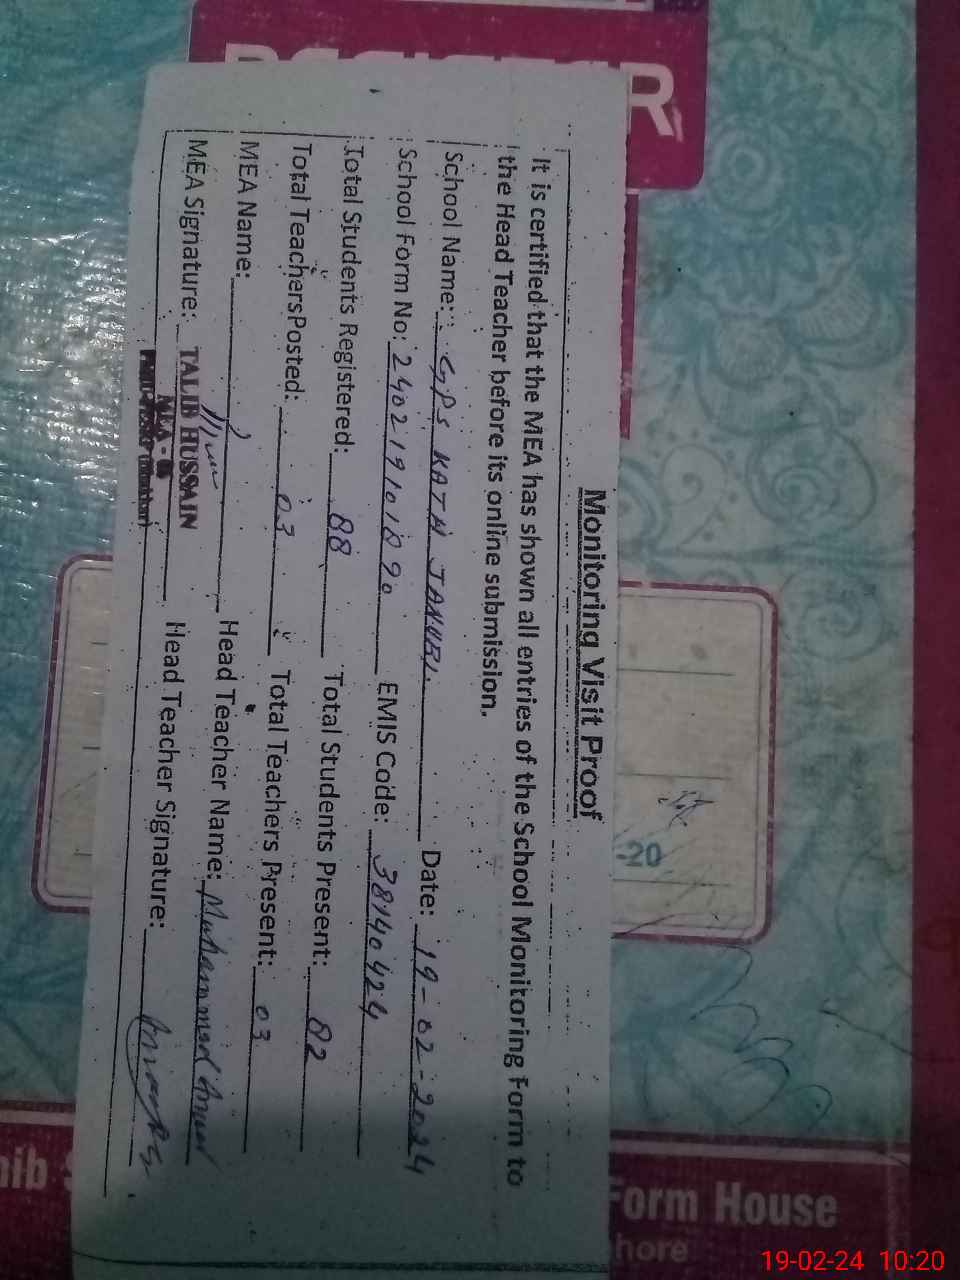 REGISTER
Monitoring Visit Proof
It is certified that the MEA has shown all entries of the School Monitoring Form to
the Head Teacher before its online submission.
School Name: GPS KATHI JANUBI. Date: 19-02-2024
School Form No: 24021910 1890 EMIS Code: 38140424
Total Students Registered: 88 Total Students Present: 82
Total Teachers Posted: 03 Total Teachers Present: 03
MEA Name: Head Teacher Name: Muhammad Anwar
MEA Signature: TALIB HUSSAIN Head Teacher Signature:
MEA -
-20
Form House
hore
19-02-24 10:20